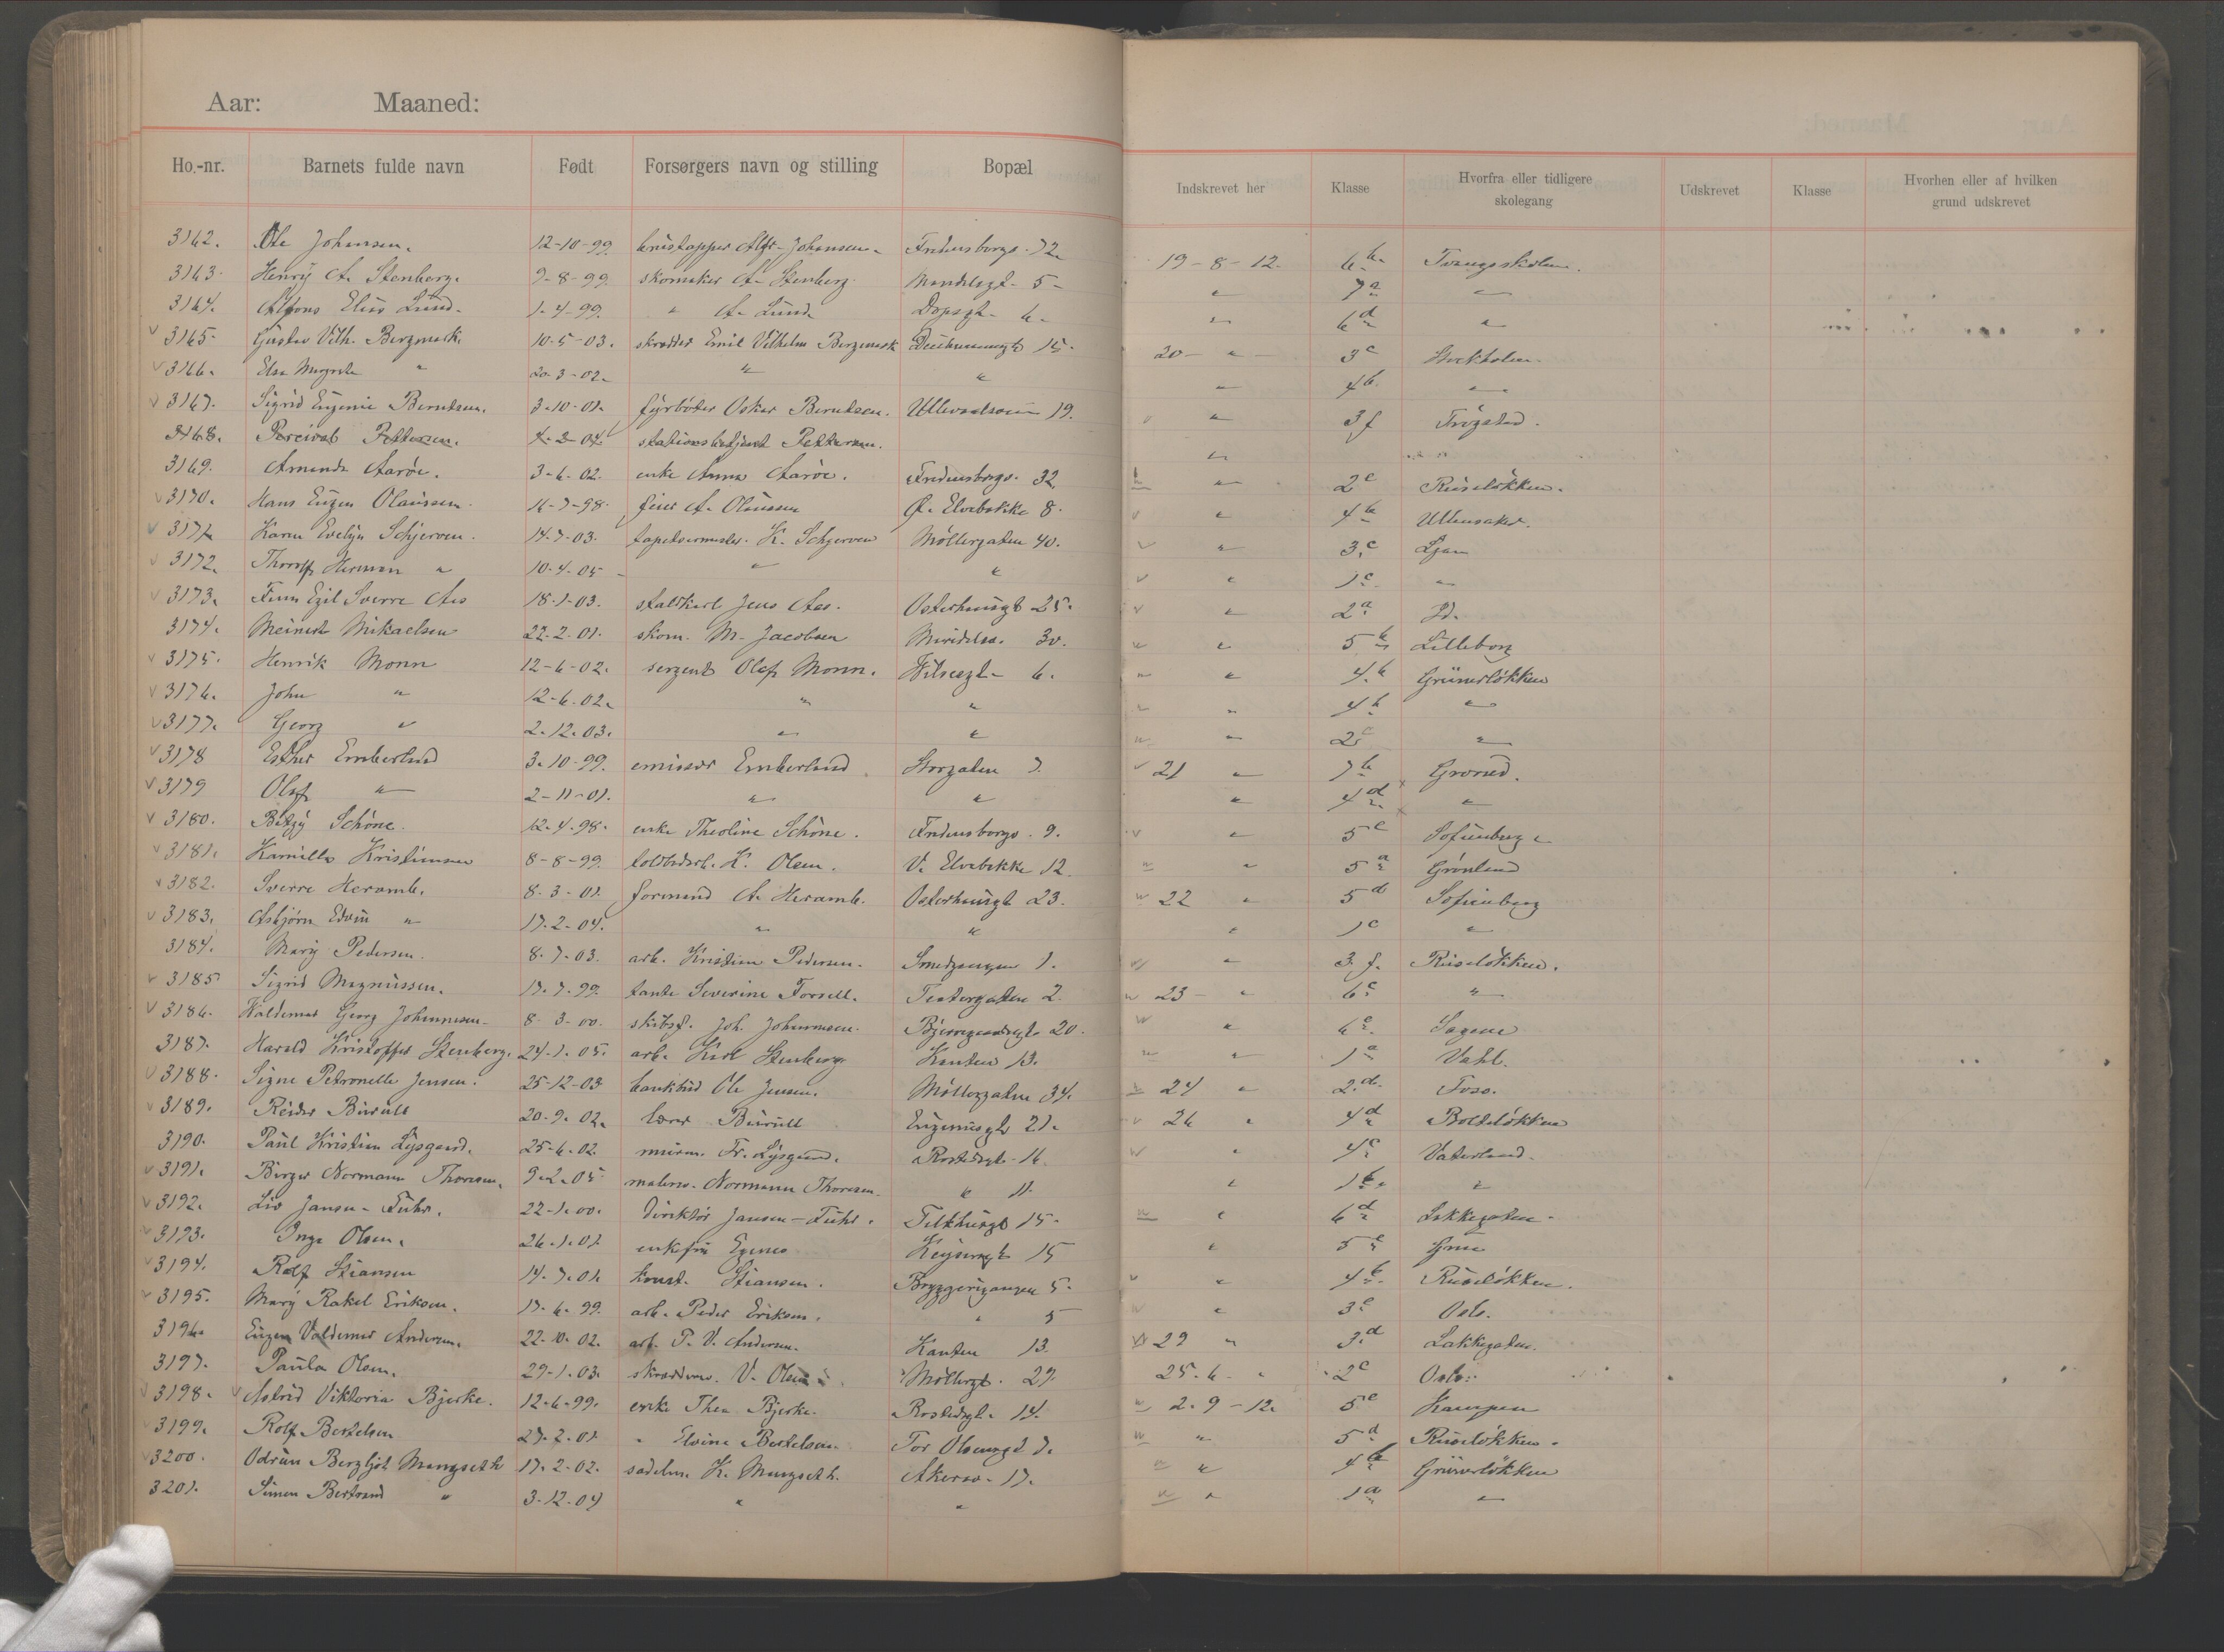 Aar: Maaned:
Ho.-nr. Barnets fulde navn Født Forsørgers navn og stilling Bopæl Indskrevet her Klasse Hvorfra eller tidligere skolegang Udskrevet Klasse Hvorhen eller af hvilken grund udskrevet
3162. Ole Johansen. 12-10-99. Johansen. Fredensborgv. 72. 19-8-12. 6 b. Tvangsskolen.
3163. Henry A. Stenberg. 9-8-99. skomaker A. Stenberg. 5 - " 7 a "
3164. Alfons Elius Lund. 1-4-99. " A. Lund. Dopsgt. 6. " 6 d "
3165. Gustav Vilh. Bergmark. 10-5-03. skrædder Emil Vilhelm Bergmark Deichmannsgt 15. 20 - " - 3 c Stockholm.
3166. Elsa " 20-3-02. " " " 4 b. "
3167. Sigrid Eugenie Berntsen. 3-10-01. fyrbøter Oskar Berntsen. Ullevaalsvein 19. " 3 f Trøgstad.
3168. Percival Pettersen. 4-2-04. stationsbetjent Pettersen. "
3169. Amanda Aarøe. 3-6-02. enke Anna Aarøe. Fredensborgv. 32 " 2 c Ruseløkken.
3170. Hans Eugen Olaussen. 16-7-98. feier A. Olaussen Ø. Elvebakke 8. " 4 b Ullensaker.
3171. Karen Evelyn Schjerven. 14-7-03. tapetserermester. K. Schjerven Møllergaten 40. " 3. c Ljan
3172. Thorolf Herman " 10-4-05 - " " " 1 c "
3173. Finn Egil Sverre Aas 18-1-03. staldkarl Jens Aas. Osterhausgt 25. " 2 a Id.
3174. Meinert Mikaelsen 22-2-01. skom. M. Jacobsen Maridalsv. 30. " 5 b Lilleborg
3175. Henrik Monn 12-6-02. sergent Olaf Monn. Wilsesgt - 6. " 4. b Grünerløkken
3176. John " 12-6-02. " " " 4 b "
3177. Georg " 2-12-03. " " " 2 c "
3178 Esther Emberland 3-10-99. emissær Emberland Storgaten 7. 21 " 7 b Grorud.
3179 Olaf " 2-11-01. " " " 4 d "
3180. Betzy Schöne. 12-4-98. enke Theoline Schöne. Fredensborgv. 9. " 5 c Sofienberg
3181. Kamilla Kristiansen 8-8-99. K. Olsen. V. Elvebakke 12. " 5 a Grønland
3182. Sverre Heramb. 8-3-01. formand A. Heramb. Osterhausgt 23. 22 " 5 d Sofienberg
3183. Asbjørn Edvin " 17-2-04. " " " 1 c "
3184. Mary Pedersen. 8-7-03. arb. Kristian Pedersen. Smedgangen 1. " 3. f. Ruseløkken.
3185 Sigrid Magnussen. 17-7-99. tante Severine Forsell. Teatergaten 2. 23 - " 6 c "
3186. Valdemar Georg Johannesen. 8-3-00. Joh. Johannesen. Bjerregaardsgt. 20. " 6 c. Sagene
3187. Harald Kristoffer Stenberg. 24-1-05. arb. Karl Stenberg. Kanten 13. " 1 a Vahl.
3188. Signe Petronelle Jensen. 25-12-03 bankbud Ole Jensen. Møllergaten 34. 24 " 2. d. Foss.
3189. Reidar Buvull 20-9-02. lærer Buvull Eugeniesgt 21. 26 " 4 d Bolteløkken
3190. Paul Kristian Lysgaard. 25-6-02. murm. Fr. Lysgaard. Rostedsgt - 16. " 4 c Vaterland.
3191. Birger Normann Thoresen. 9-2-05 malerm. Normann Thoresen. " 11. " 1 b. "
3192. Liv Jansen-Fuhr. 22-1-00. direktør Jansen-Fuhr. Falkbugt 15. " 6 d Lakkegaten.
3193. Inga Olsen. 26-1-01. enkefru Egenes Keysersgt 15 " 5 c
3194. Rolf Stiansen 14-7-01. Stiansen. Bryggerigangen 5. " 4 b. Ruseløkken.
3195. Mary Rakel Eriksen. 17-6-99. arb. Peder Eriksen. " 5 " 3 c Oslo.
3196. Eugen Valdemar Andersen. 22-10-02. arb. P. V. Andersen. Kanten 13. 29 " 3. d Lakkegaten.
3197. Paula Olsen. 29-1-03. skræderm. V. Olsen. Møllergt. 29. 25-6 - " 2 c Oslo.
3198. Astrid Viktoria Bjerke. 12-6-99. enke Thea Bjerke. Rostedsgt. 14. 2-9-12. 5 c Kampen
3199. Rolf Bertelsen 27-2-01. " Elvine Bertelsen. Tor Olsensgt 7. " 5 d Ruseløkken.
3200. Odrun Bergljot Mangseth 17-2-02. sadelm. K. Mangseth. Akersv. 17. " 4 b Grünerløkken
3201. Simen Bertrand " 3-12-04 " " " 1 a "